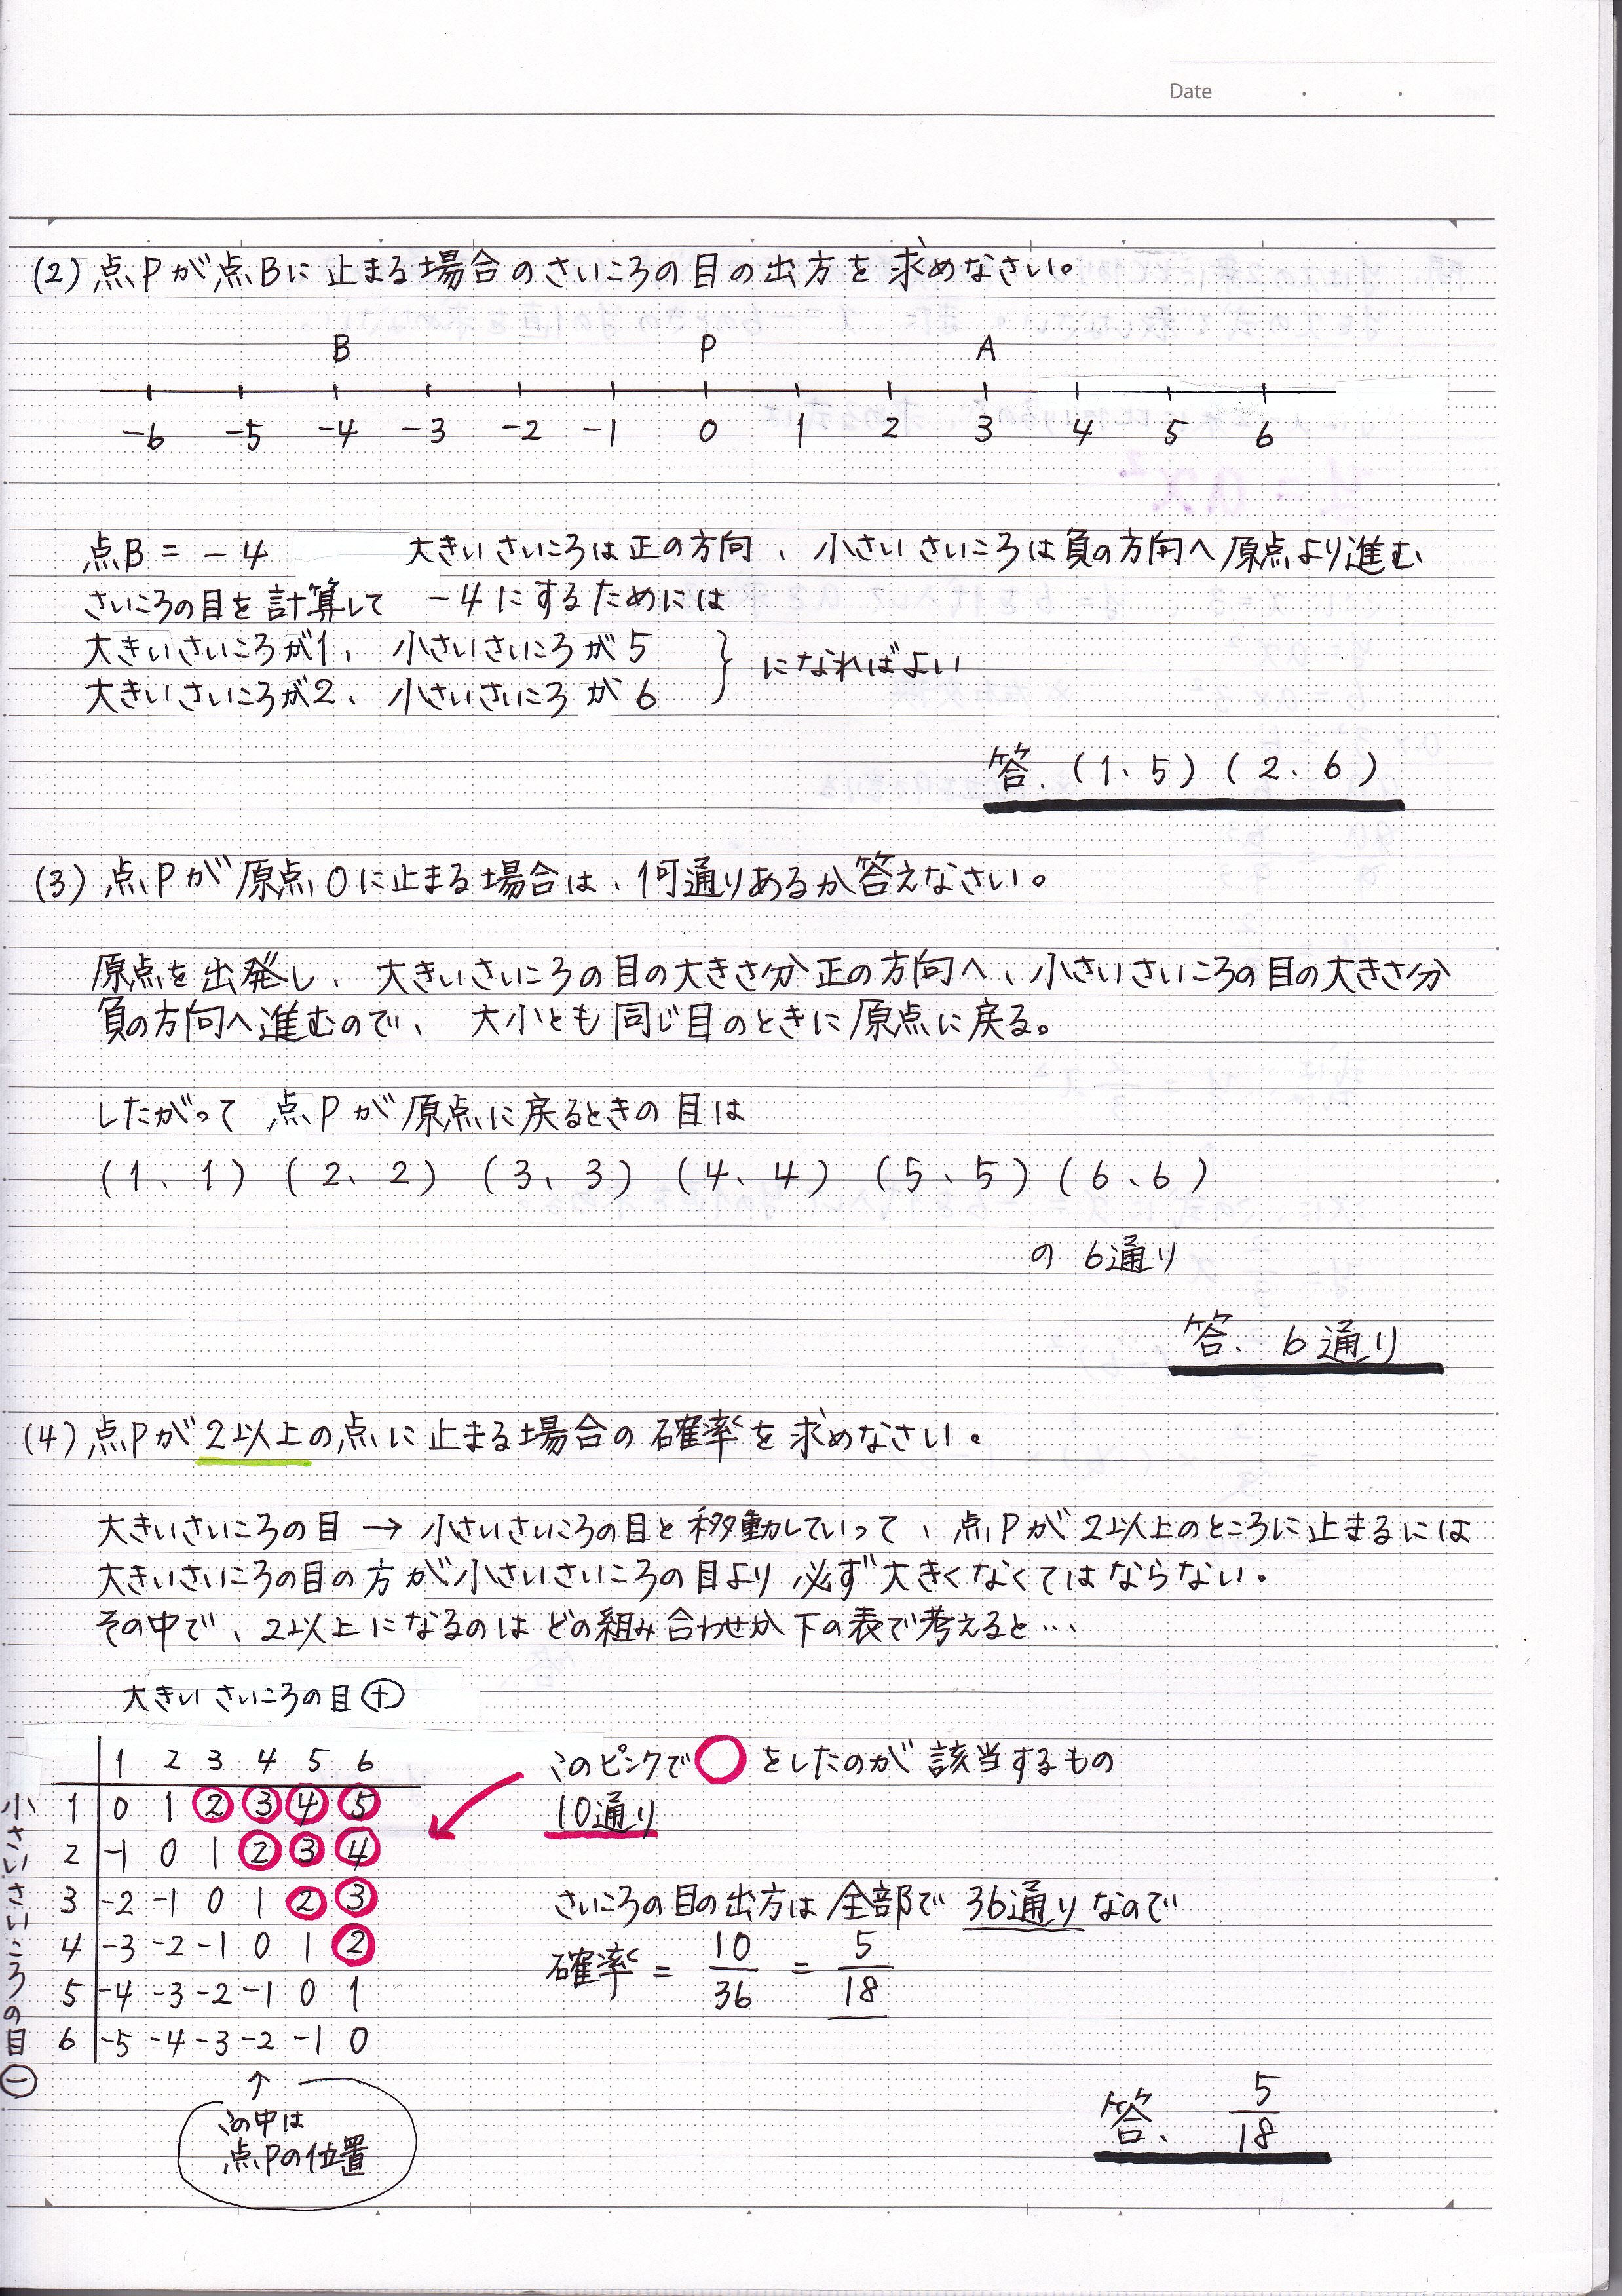 Date ・ ・
(2) 点Pが点Bに止まる場合のさいころの目の出方を求めなさい。
B P A
-6 -5 -4 -3 -2 -1 0 1 2 3 4 5 6
点B = -4 大きいさいころは正の方向、小さいさいころは負の方向へ原点より進む
さいころの目を計算して -4にするためには
大きいさいころが1、小さいさいころが5
大きいさいころが2、小さいさいころが6
} になればよい
答.(1、5)(2、6)
(3) 点Pが原点Oに止まる場合は、何通りあるか答えなさい。
原点を出発し、大きいさいころの目の大きさ分正の方向へ、小さいさいころの目の大きさ分
負の方向へ進むので、大小とも同じ目のときに原点に戻る。
したがって 点Pが原点に戻るときの目は
(1、1) (2、2) (3、3) (4、4) (5、5) (6、6)
の 6通り
答、6通り
(4) 点Pが2以上の点に止まる場合の確率を求めなさい。
大きいさいころの目 → 小さいさいころの目と移動していって、点Pが2以上のところに止まるには
大きいさいころの目の方が小さいさいころの目より必ず大きくなくてはならない。
その中で、2以上になるのはどの組み合わせか下の表で考えると…
大きいさいころの目⊕
小さいさいころの目⊖
1 2 3 4 5 6
1 0 1 ② ③ ④ ⑤
2 -1 0 1 ② ③ ④
3 -2 -1 0 1 ② ③
4 -3 -2 -1 0 1 ②
5 -4 -3 -2 -1 0 1
6 -5 -4 -3 -2 -1 0
↑
この中は
点Pの位置
このピンクで○をしたのが該当するもの
10通り
さいころの目の出方は全部で 36通りなので
確率 = 10/36 = 5/18
答、5/18